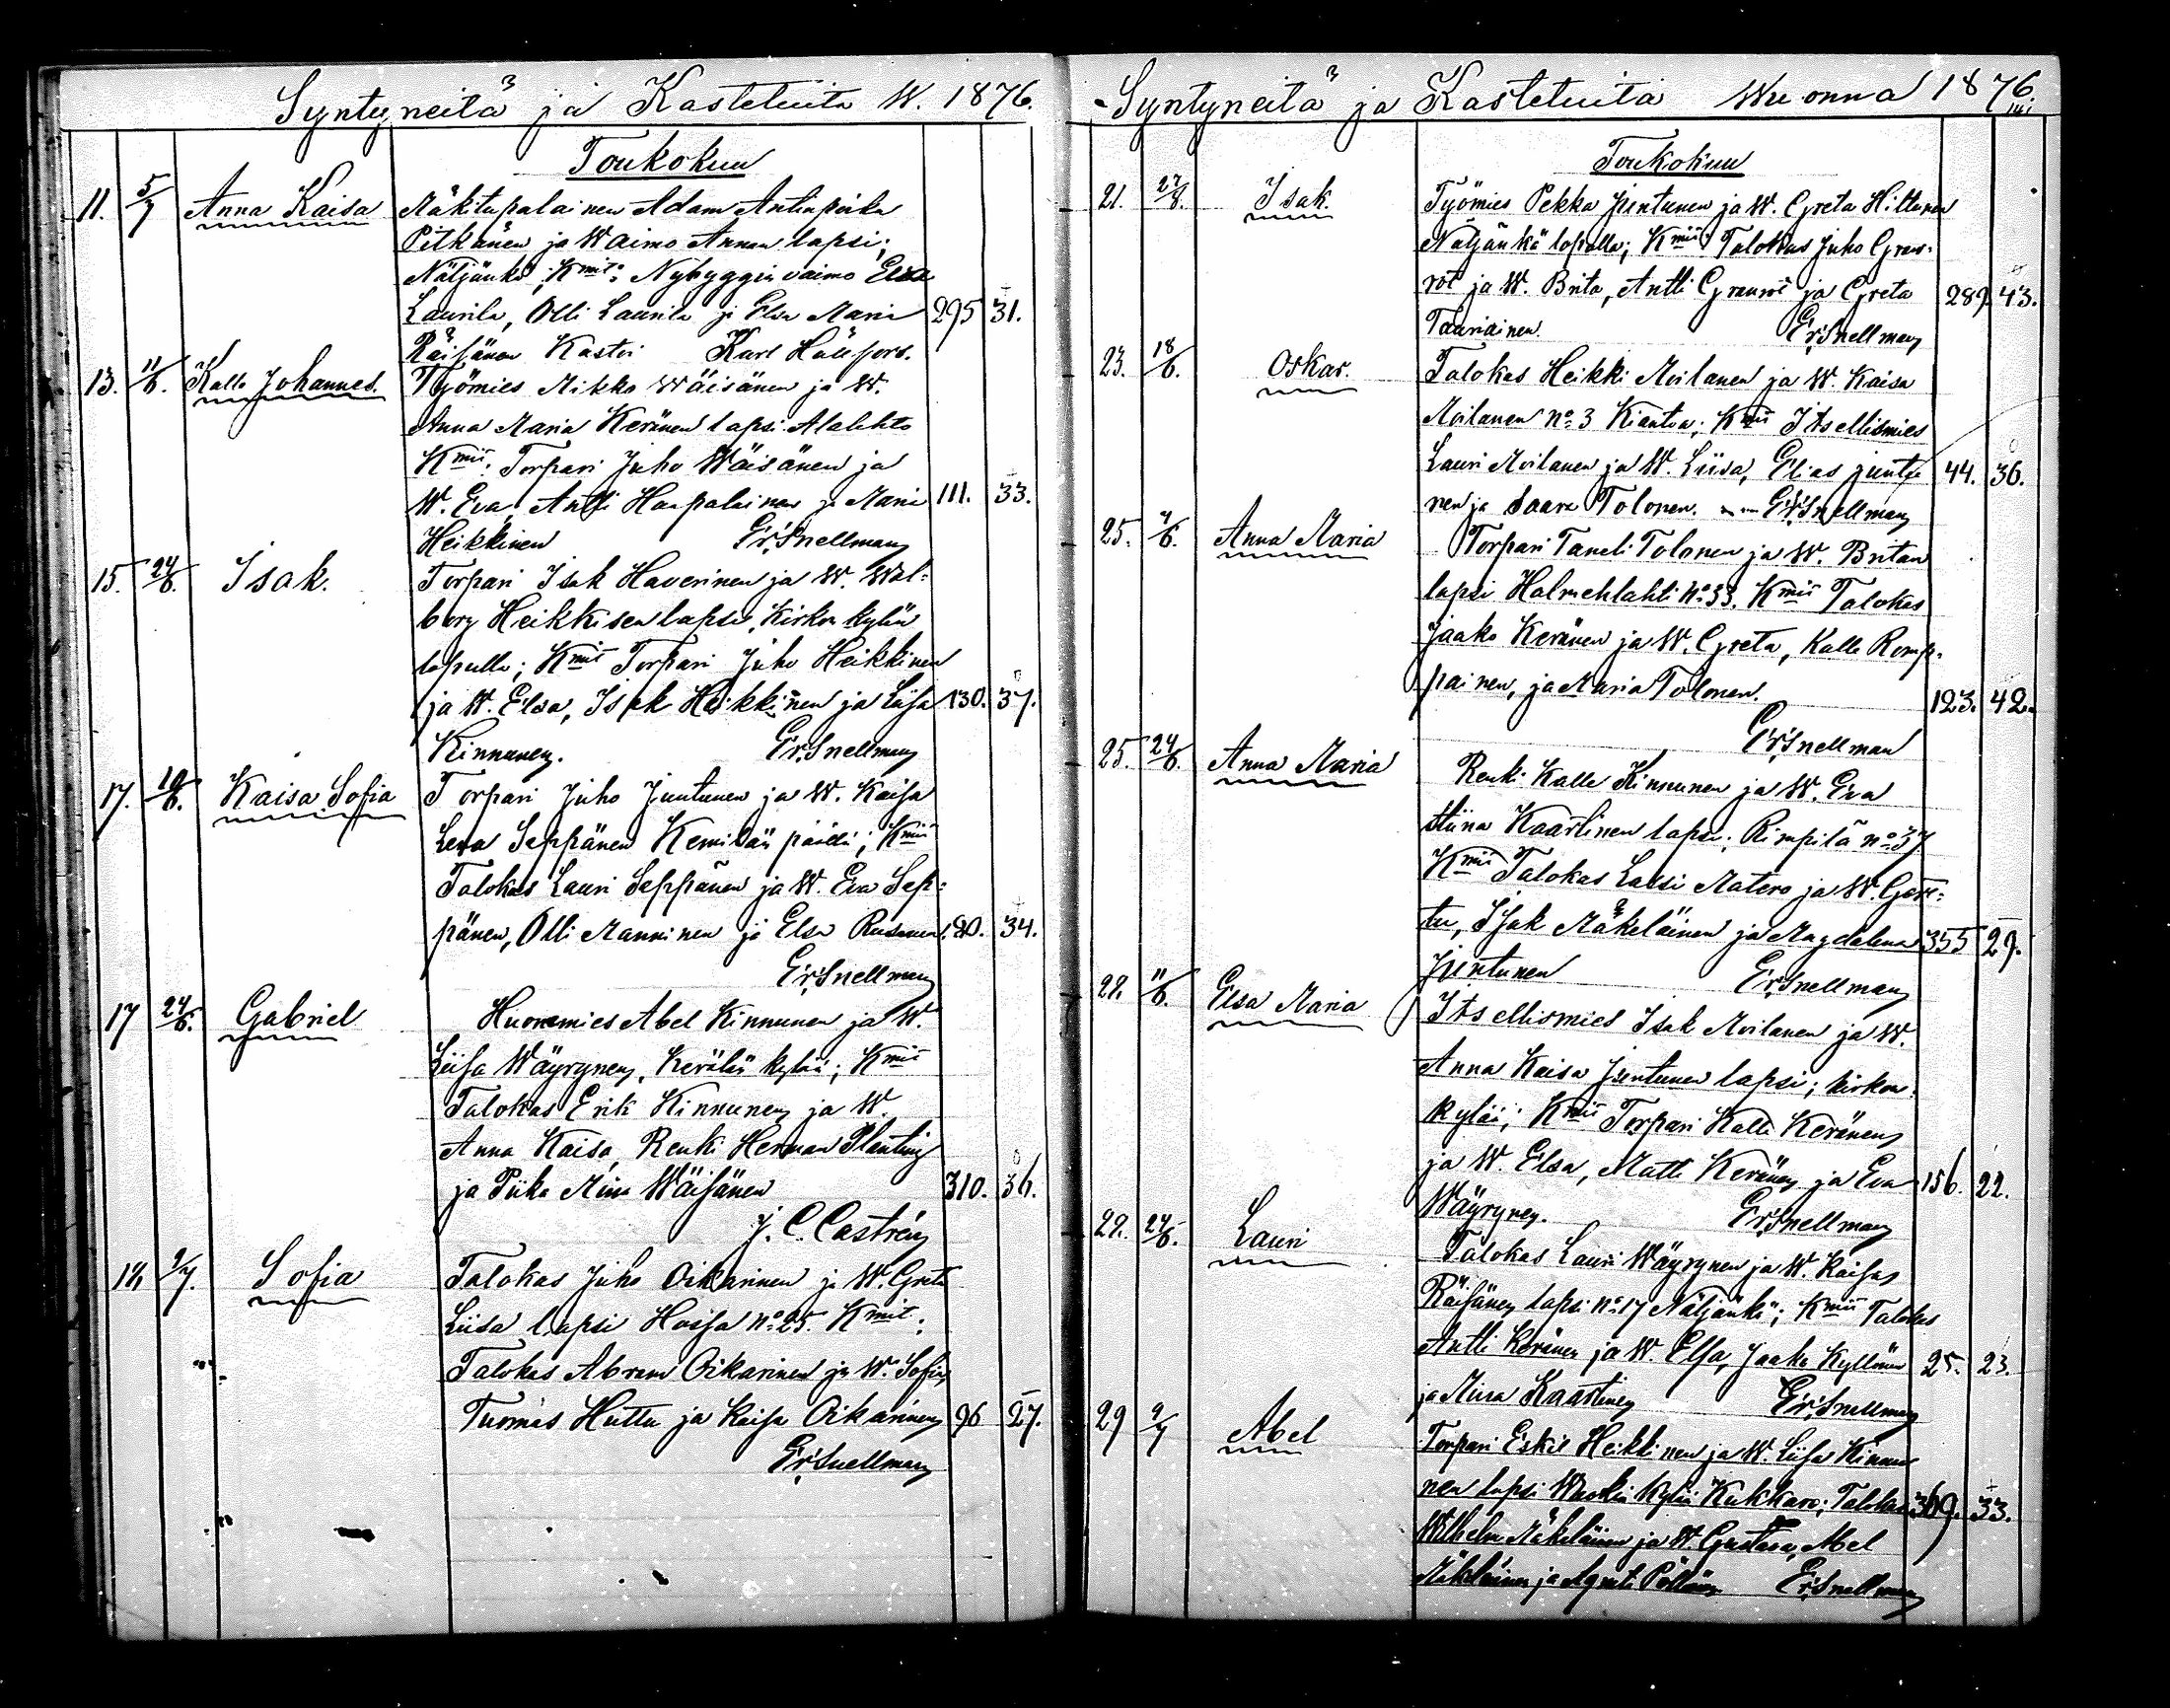 Syntyneitä ja Kastetuita W. 1876.
Toukokuu
11. 5/7 Anna Kaisa Mäkitupalainen Adam Antinpoika
Pitkänen ja Waimo Annan lapsi;
Näljänkö; Kmit: Nybyggin vaimo Elsa
Laurila, Olli Laurila ja Elsa Maria 295 31.
Räisänen Kastoi Karl Hällfors.
13. 11/6. Kalle Johannes. Työmies Mikko Wäisänen ja W.
Anna Maria Keränen lapsi Alalehto
Kmii. Torpari Juho Wäisänen ja
W. Eva, Antti Haapalainen ja Maria 111. 33.
Heikkinen Er. Snellman
15. 24/6. Isak. Torpari Isak Haverinen ja W. Wal=
borg Heikkisen lapsi, Kirkon kylän
lopulla; Kmii Torpari Juho Heikkinen
ja W. Elsa, Isak Heikkinen ja Liisa 130. 37.
Kinnunen. Er. Snellman
17. 18/6. Kaisa Sofia Torpari Juho Juntunen ja W. Kaisa
Lena Seppänen Kemilän päällä; Kmii
Talokas Lauri Seppänen ja W. Eva Sep=
pänen, Olli Manninen ja Elsa 80. 34.
Er. Snellman
17 24/6. Gabriel Huonemies Abel Kinnunen ja W.
Liisa Wäyrynen, Kerälän kylää; Kmii
Talokas Erik Kinnunen ja W.
Anna Kaisa, Renki Herman Planting
ja Piika Miina Wäisänen 310. 36.
J. C. Castrén
18 2/7. Sofia Talokas Juho Oikarinen ja W. Greta
Liisa lapsi Hossa No 25. Kmit:
Talokas Abram Oikarinen ja W. Sofia,
Tuomas Huttu ja Kaisa Oikarinen 96 27.
Er. Snellman
Syntyneitä ja Kastetuita Wuonna 1876.
Toukokuu
21. 27/8. Isak. Työmies Pekka Juntunen ja W. Greta Hiltunen
Näljänkä lopalla; Kmii: Talokas Juho Graus=
rot ja W. Brita, Antti ja Greta 289. 43.
Tauriainen. Er. Snellman
23. 18/6. Oskar. Talokas Heikki Moilanen ja W. Kaisa
Moilanen No 3 Kianta; Kmii Itsellismies
Lauri Moilanen ja W. Liisa, Elias Juntu 44. 36.
nen ja Saara Tolonen. Er. Snellman
25. 4/6. Anna Maria Torpari Taneli Tolonen ja W. Britan
lapsi Halmehlahti No 33. Kmii Talokas
Jaako Keränen ja W. Greta, Kalle Romp=
painen, ja Maria Tolonen. 123. 42.
Er. Snellman
25. 24/6. Anna Maria Renki Kalle Kinnunen ja W. Eva
Stiina Kaartinen lapsi; Rimpilä No 37
Kmii Talokas Lassi Matero ja W. Gert=
tu, Isak Mäkeläinen ja Magdalena 355 29.
Juntunen Er. Snellman
28. 11/6. Elsa Maria Itsellismies Isak Moilanen ja W.
Anna Kaisa Juntunen lapsi; kirkon
kylää; Kmii Torpari Kalle Keränen
ja W. Elsa, Matti Keränen ja Eva 156. 22.
Wäyrynen. Er. Snellman
28. 24/6. Lauri Talokas Lauri Wäyrynen ja W. Kaisa
Räisänen lapsi No 17 Näljänkä; Kmii Talokas
Antti Keränen ja W. Elsa, Jaako Kyllönen 25. 23.
ja Miina Kaartinen Er. Snellman
29 2/7 Abel Torpari Eskil Heikkinen ja W. Liisa Kinnu
nen lapsi kylää Kukkaro; Talokas 369. 33.
Wilhelm Mäkeläinen ja W. Gustava, Abel
Mäkeläinen ja Agneta Er. Snellman